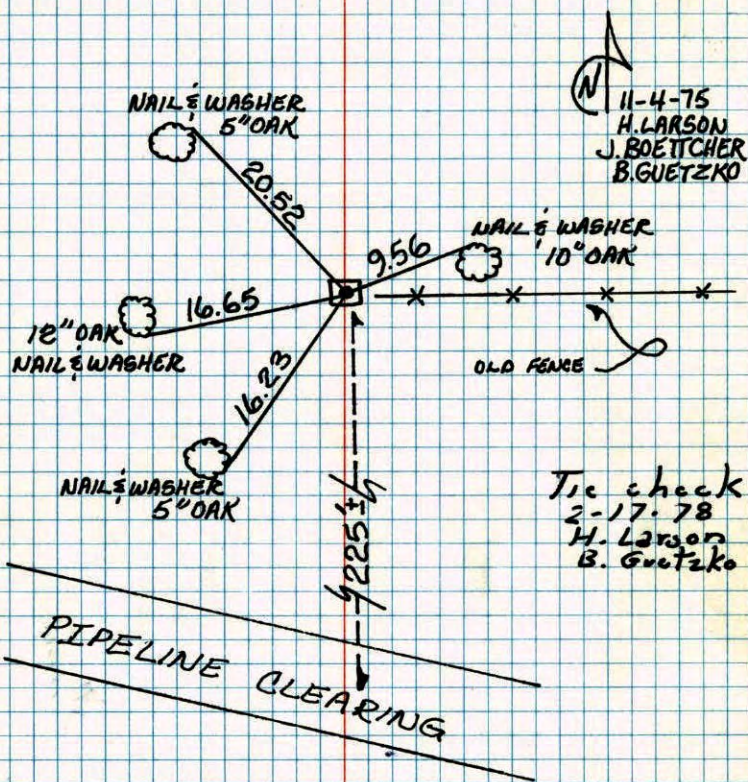 N
11-4-75
H. LARSON
J. BOETTCHER
B. GUETZKO
NAIL & WASHER
5" OAK
20.52
NAIL & WASHER
10" OAK
9.56
16.65
12" OAK
NAIL & WASHER
OLD FENCE
16.23
NAIL & WASHER
5" OAK
225'±
Tie check
2-17-78
H. Larson
B. Guetzko
PIPELINE CLEARING